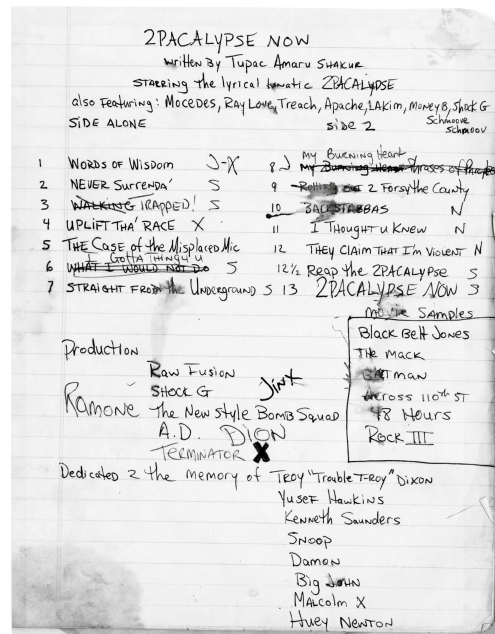 2PACALYPSE NOW
written By Tupac Amaru SHAKUR
STARRING The lyrical lunatic 2PACALYPSE
also Featuring: MOCEDES, RAY LOVE, Treach, Apache, LAkim, MONEY B, Shock G
Schmoove
schmoov
SIDE ALONE
side 2
1 WORDS OF WISDOM J-X
2 NEVER SURRENDA' S
3 WALKING TRAPPED! S
4 UPLIFT THA' RACE X
5 THE CASE of the Misplaced Mic
I GOTTA THING 4 U
6 WHAT I WOULD NOT DO S
7 STRAIGHT FROM the Underground S
My BURNING HEART
8 J My BURNING HEART Phrases of the
9 Rolling out 2 Forsythe County
10 BACKSTABBAS N
11 I THOUGHT u KNEW N
12 THEY CLAIM THAT I'M VIOLENT N
12½ Reap the 2PACALYPSE S
13 2PACALYPSE NOW S
Movie SAMPLES
Black Belt Jones
THE MACK
BATMAN
Across 110th ST
48 HOURS
ROCK III
Production
Raw Fusion
SHOCK G
JINX
Ramone The New Style Bomb Squad
A.D. DION
TERMINATOR X
Dedicated 2 the memory of TROY "Trouble T-ROY" DIXON
YUSEF HAWKINS
Kenneth Saunders
SNOOP
Damon
Big JOHN
MALCOLM X
HUEY NEWTON